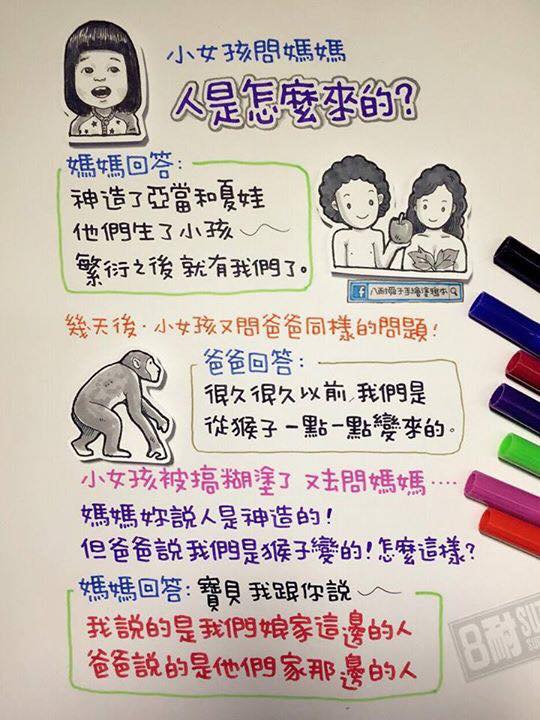 小女孩問媽媽
人是怎麼來的?
媽媽回答:
神造了亞當和夏娃
他們生了小孩
繁衍之後就有我們了。
幾天後.小女孩又問爸爸同樣的問題!
爸爸回答:
很久很久以前,我們是
從猴子一點一點變來的。
小女孩被搞糊塗了 又去問媽媽····
媽媽妳說人是神造的!
但爸爸說我們是猴子變的!怎麼這樣?
媽媽回答: 寶貝 我跟你說
我說的是我們娘家這邊的人
爸爸說的是他們家那邊的人
8耐